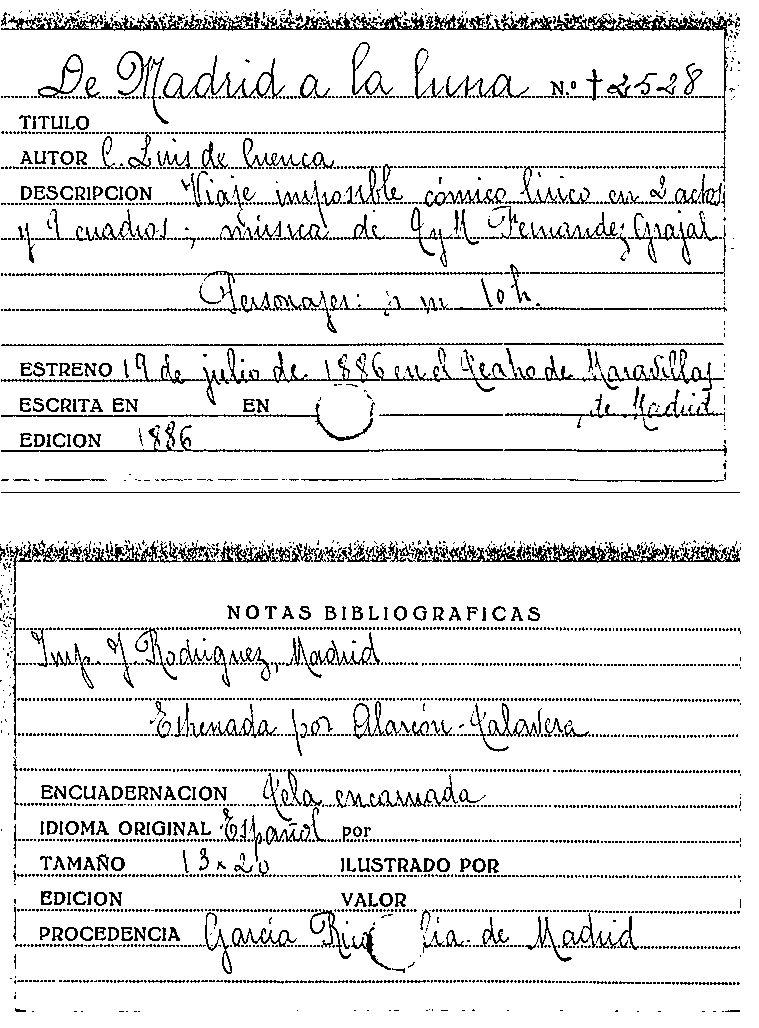 De Madrid a la luna N.º +2528
TITULO
AUTOR C. Luis de Cuenca
DESCRIPCION Viaje imposible cómico lírico en 2 actos
y 9 cuadros; música de T y M Fernandez Grajal
Personajes: 5 m. 10 h.
ESTRENO 19 de julio de 1886 en el Teatro de Maravillas
ESCRITA EN EN de Madrid
EDICION 1886
NOTAS BIBLIOGRAFICAS
Imp. J. Rodriguez, Madrid
Estrenada por Alarcón-Talavera
ENCUADERNACION Tela encarnada
IDIOMA ORIGINAL Español por
TAMAÑO 13 x 20 ILUSTRADO POR
EDICION VALOR
PROCEDENCIA García Rico Cía. de Madrid